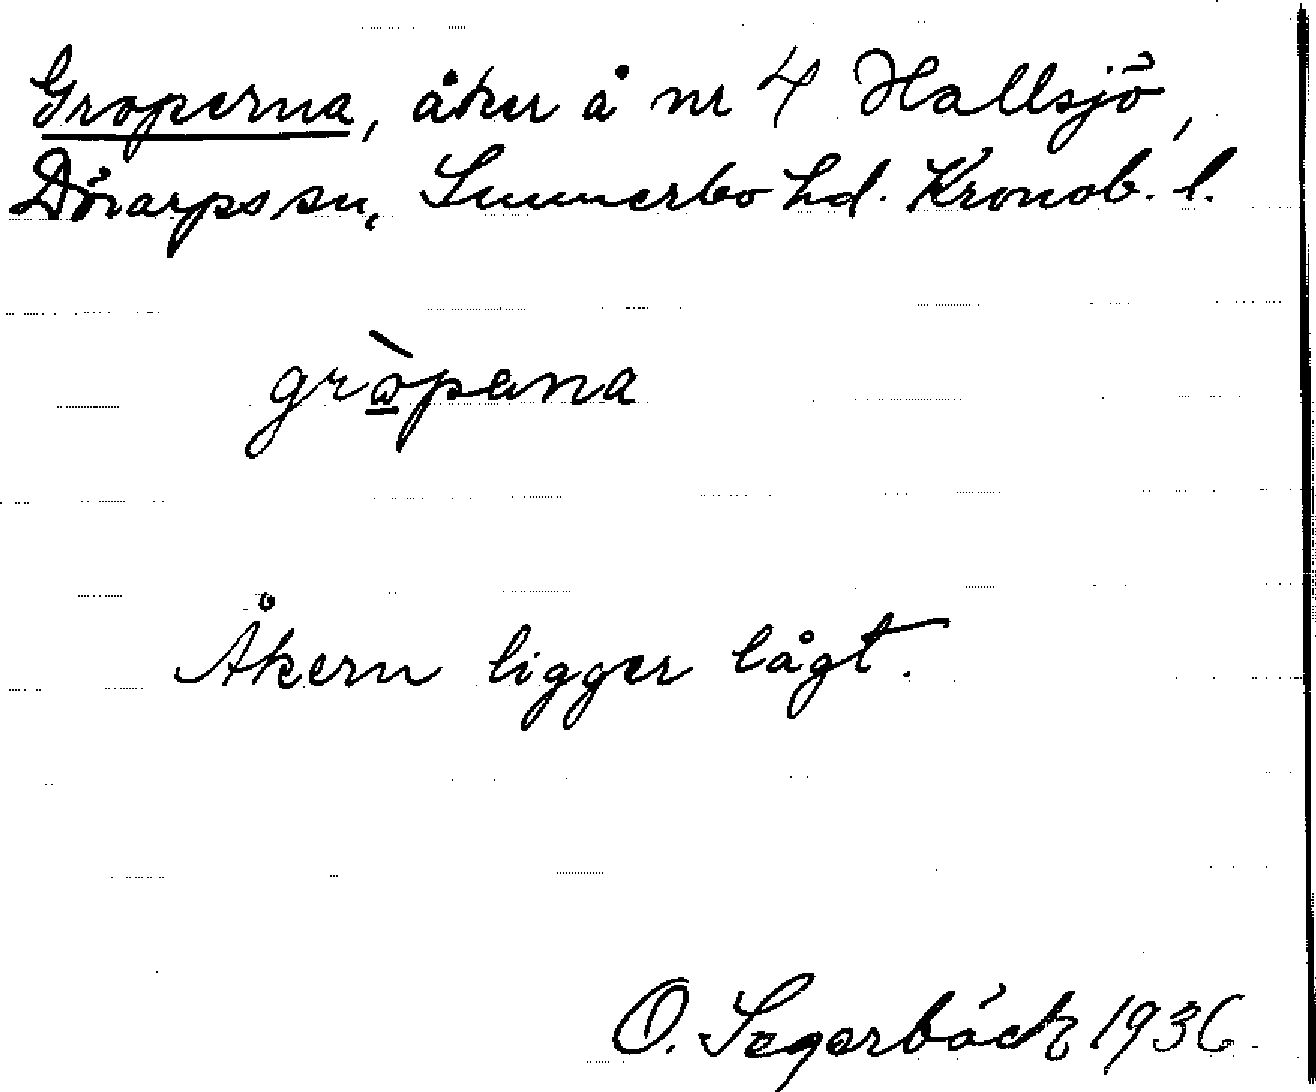 Groperna, åker å nr 4 Hallsjö,
Dörarps sn, Sunnerbo hd. Kronob. l.
grò̲pana
Åkern ligger lågt.
O. Segerbäck 1936.